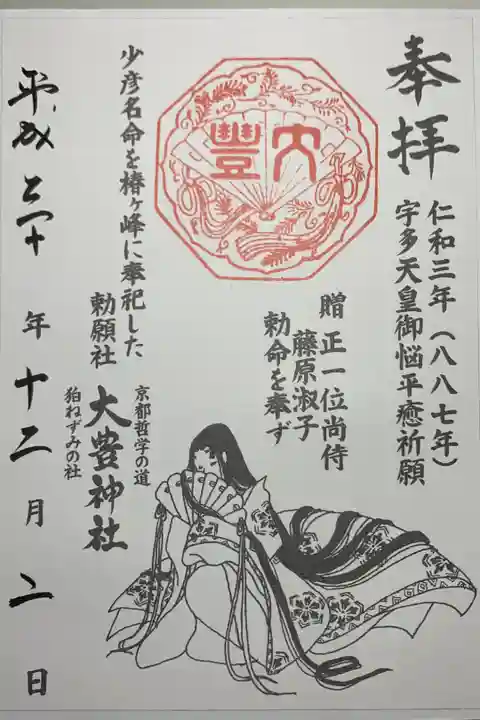 奉拝
仁和三年（八八七年）
宇多天皇御悩平癒祈願
贈 正一位尚侍
藤原淑子
勅命を奉ず
大豊
少彦名命を椿ヶ峰に奉祀した
勅願社
京都哲学の道
大豊神社
狛ねずみの社
平成三十年十二月二日